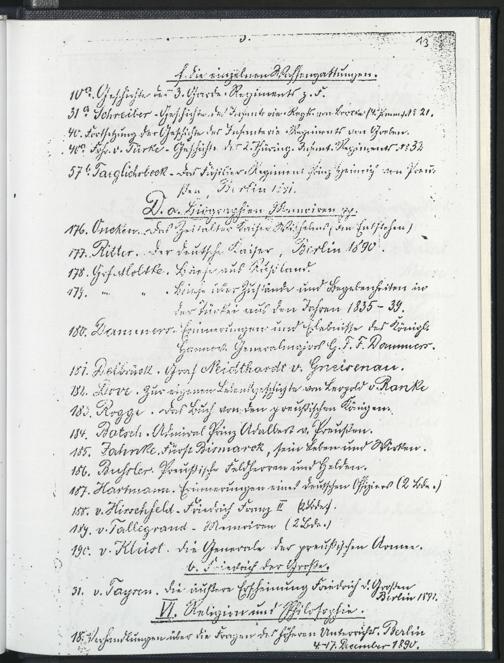 13
f. die einzelnen Waffengattungen.
10a. Geschichte des 3. Garde-Regiments z. F.
31a Schreiber - Geschichte des Infanterie-Regts. von Borcke (4. Pomm.) No 21.
40. Fortsetzung der Geschichte des Infanterie-Regiments von Goeben.
40a Frhr. v. Türke - Geschichte des 2. Thüring. Infant. Regiments No 32
57b Taeglichsbeck - das Füsilier-Regiment Prinz Heinrich von Preu-
ßen, Berlin 1891.
D. a. Biographien Memoiren pp.
176. Oncken. das Zeitalter Kaiser Wilhelms (im Entstehen)
177. Ritter. der deutsche Kaiser, Berlin 1890.
178. Grf. Moltke. Briefe aus Rußland.
179. " " . Briefe über Zustände und Begebenheiten in
der Türkei aus den Jahren 1835-39.
180. Dammers. Erinnerungen und Erlebnisse des Königl.
Hannov. Generalmajors G. F. F. Dammers.
181. Delbrück. Graf Neidthardt v. Gneisenau.
182. Dove. Zur eigenen Lebensgeschichte von Leopold v. Ranke
183. Rogge. das Buch von den preußischen Königen.
184. Batsch. Admiral Prinz Adalbert v. Preußen.
185. Jahnke. Fürst Bismarck, sein Leben und Wirken.
186. Buxler. Preußische Feldherren und Helden.
187. Hartmann. Erinnerungen eines deutschen Offiziers (2 Bde.)
188. v. Hirschfeld - Friedrich Franz II (2 Bde.)
189. v. Talleyrand - Memoiren (2 Bde.)
190. v. Kleist. die Generale der preußischen Armee.
b. Friedrich der Große.
31. v. Taysen. die äußere Erscheinung Friedrich d. Großen
Berlin 1891.
VI. Religion und Philosophie.
18. Verhandlungen über die Fragen des höheren Unterrichts. Berlin
4-17. Dezember 1890.